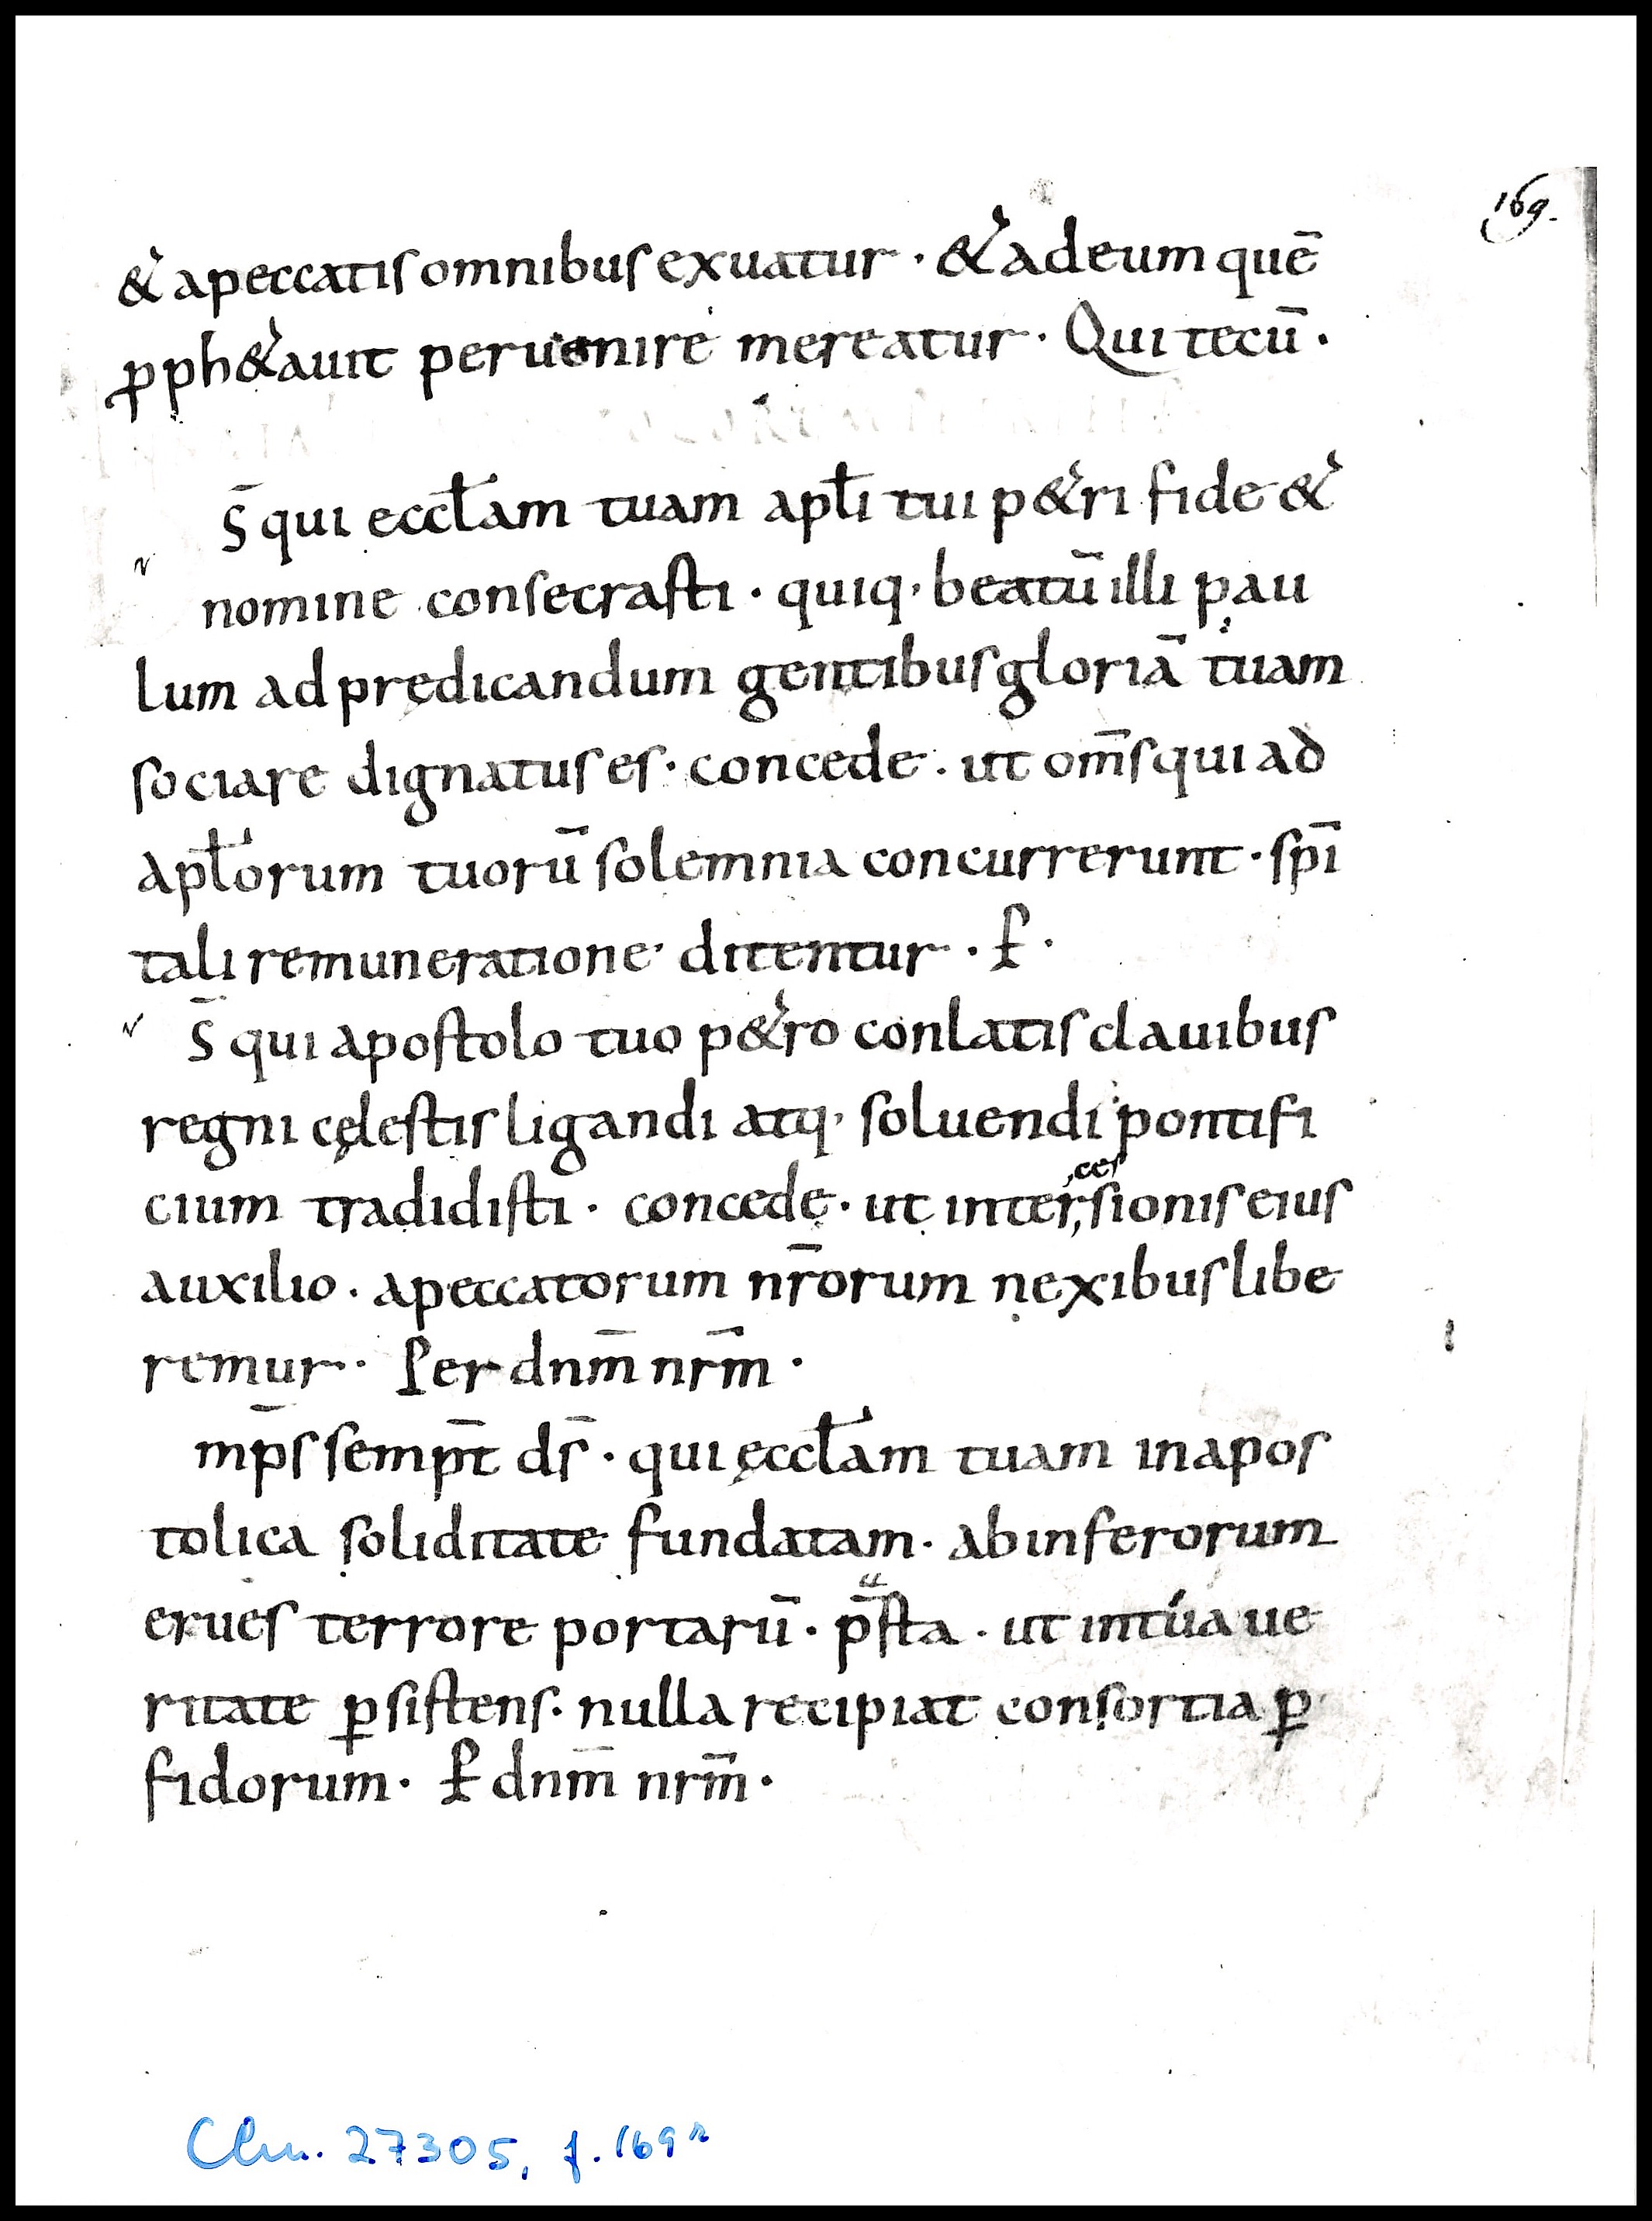 169.
& apeccatis omnibus exuatur · & adeum quē
ꝓph&auit peruenire mereatur · Qui tecū ·
S̄ qui eccƚam tuam apƚi tui p&ri fide &
nomine consecrasti · quiq· beatū illi pau
lum ad prędicandum gentibus gloriā tuam
sociare dignatus es · concede · ut om̄s qui ad
apƚorum tuorū solemnia concurrerunt · sp̄i
tali remuneratione ditentur · P ·
S̄ qui apostolo tuo p&ro conlatis clauibus
regni cęlestis ligandi atq· soluendi pontifi
ces
cium tradidisti · concede · ut inter,sionis eius
auxilio · apeccatorum nr̄orum nexibus libe
remur · Per dnm̄ nrm̄ ·
mp̄s semp̄t ds̄ · qui ęccƚam tuam in apos
tolica soliditate fundatam · ab inferorum
erues terrore portarū · p̄sta · ut in túa ue
ritate ꝑsistens · nulla recipiat consortia ꝑ
fidorum · P dnm̄ nrm̄ ·
Clm. 27305, f. 169r